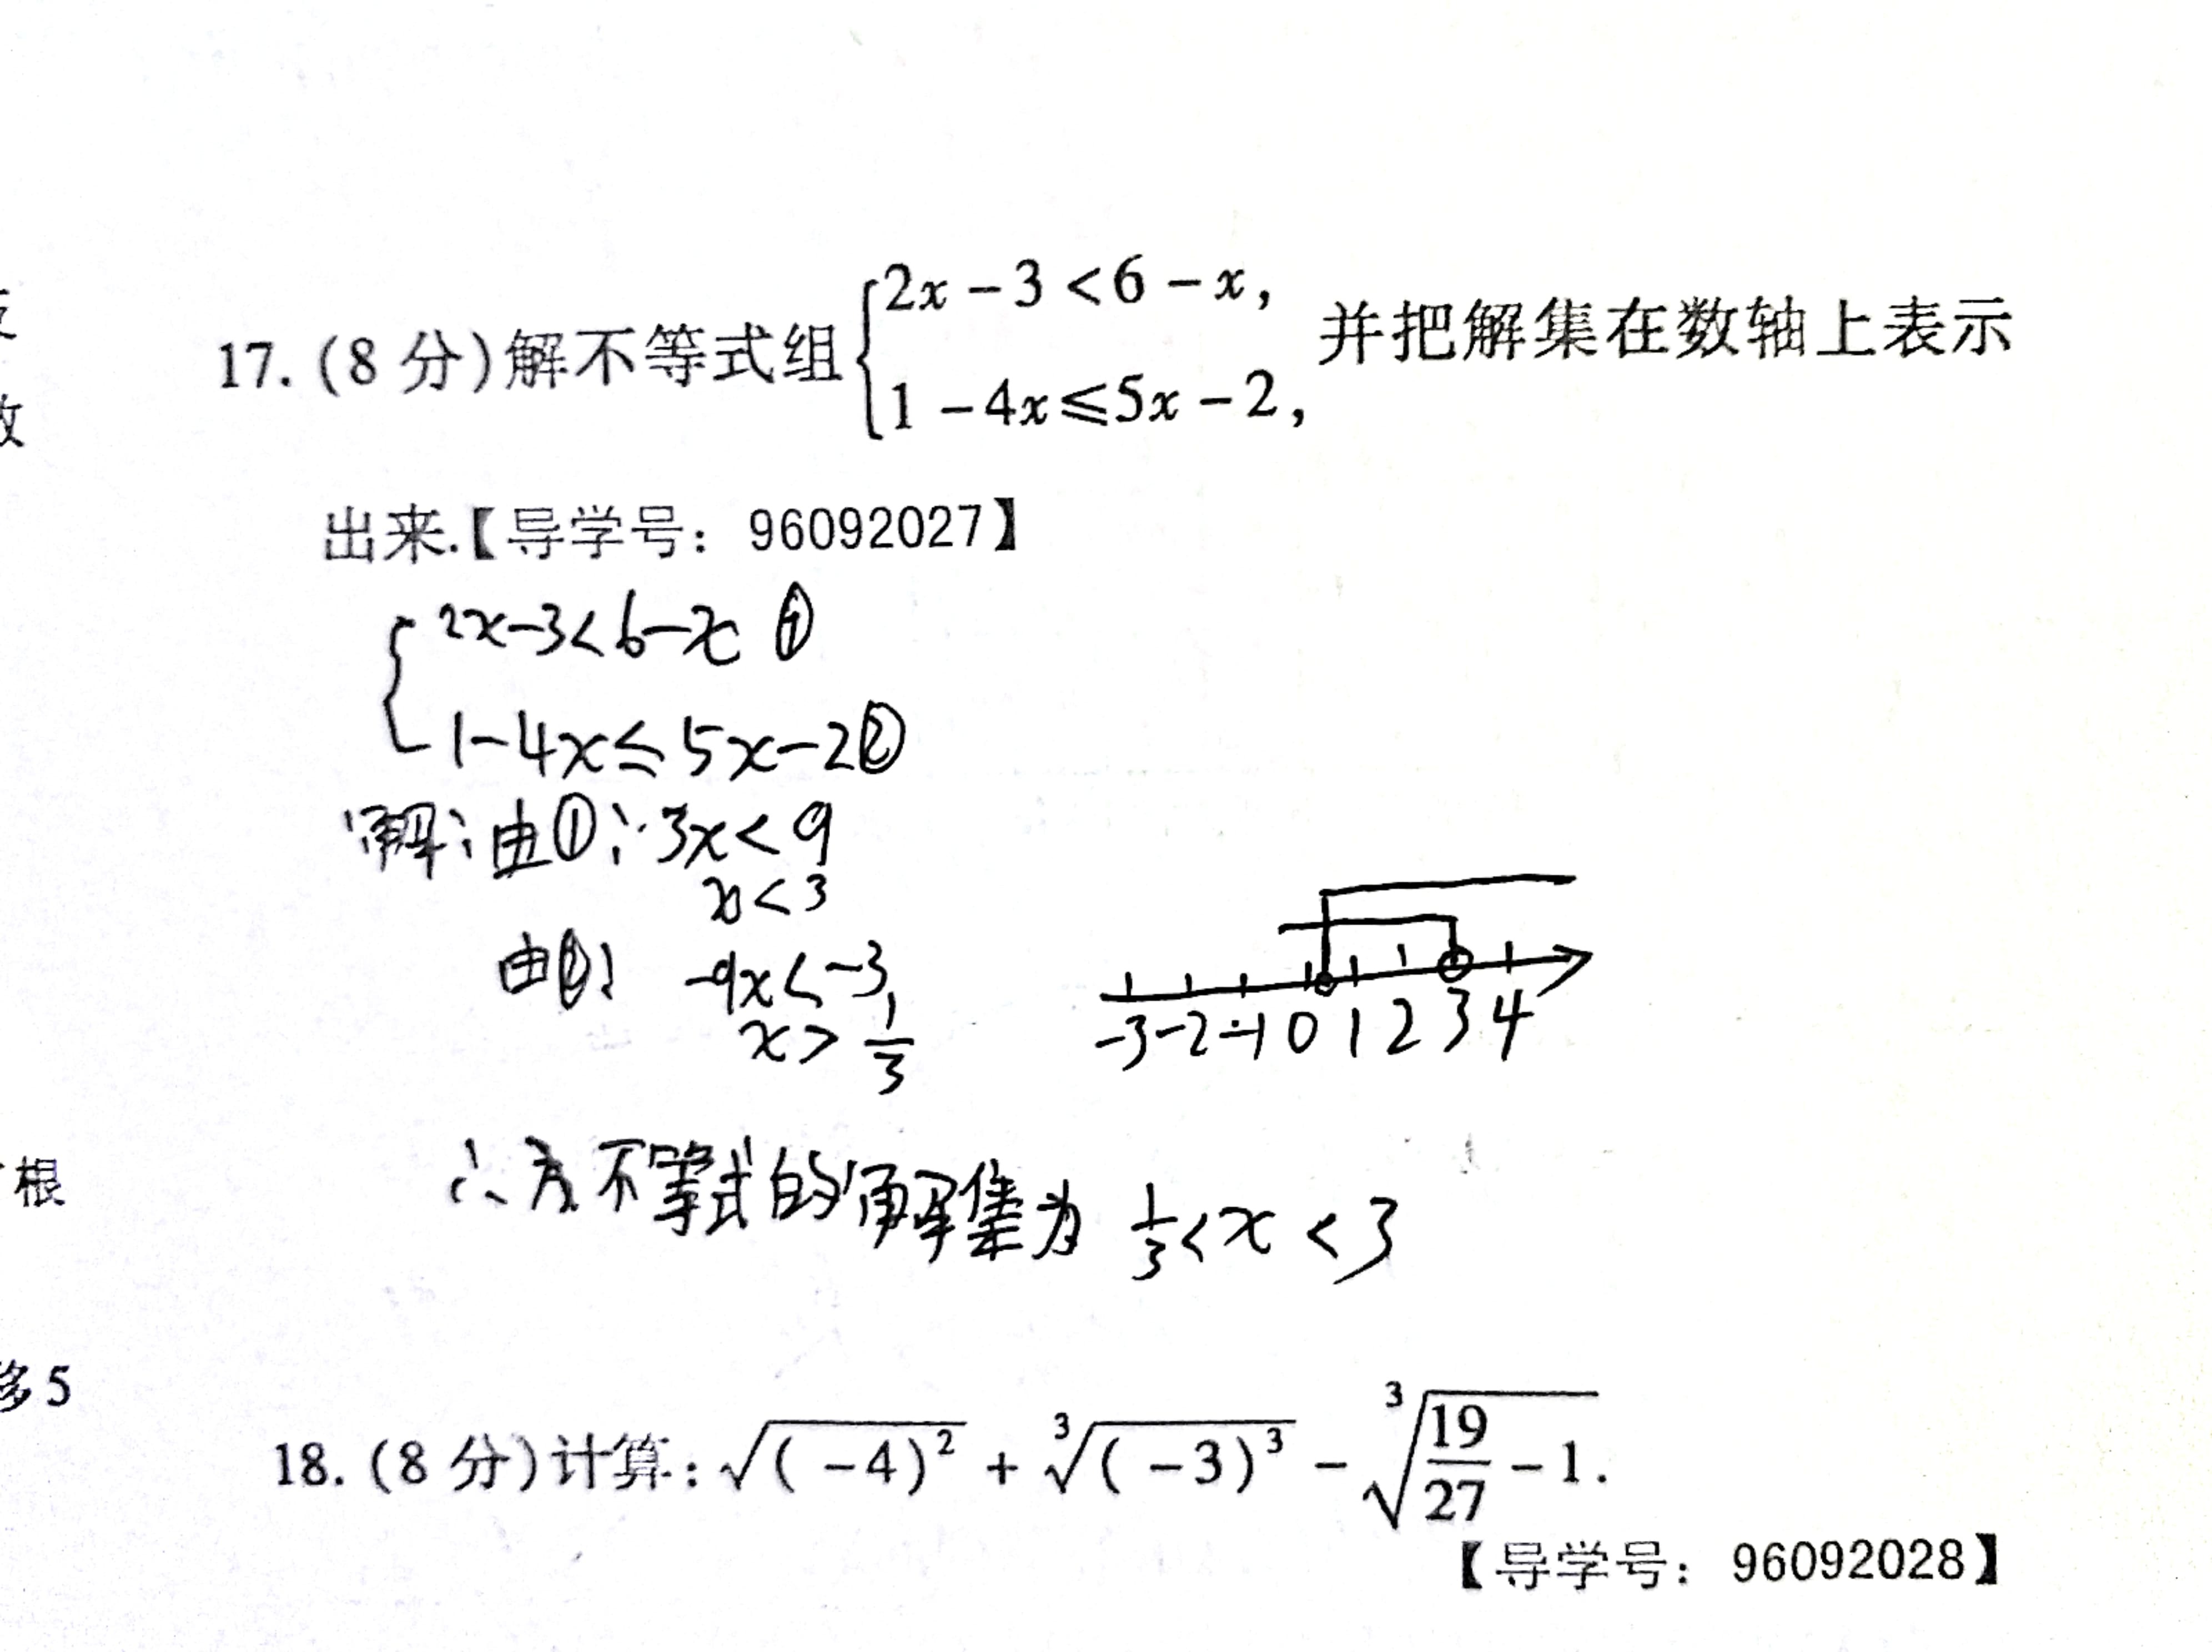 17. (8 分)解不等式组{2x - 3 < 6 - x, 并把解集在数轴上表示
1 - 4x ≤ 5x - 2,
出来.【导学号：96092027】
{2x-3<6-x ①
1-4x≤5x-2②
解:由①: 3x<9
x<3
由②: -9x<-3
x>1/3
-3 -2 -1 0 1 2 3 4
∴ 不等式的解集为 1/3<x<3
根
移 5
18. (8 分)计算:√(-4)² + ³√(-3)³ - ³√19/27 - 1.
【导学号：96092028】